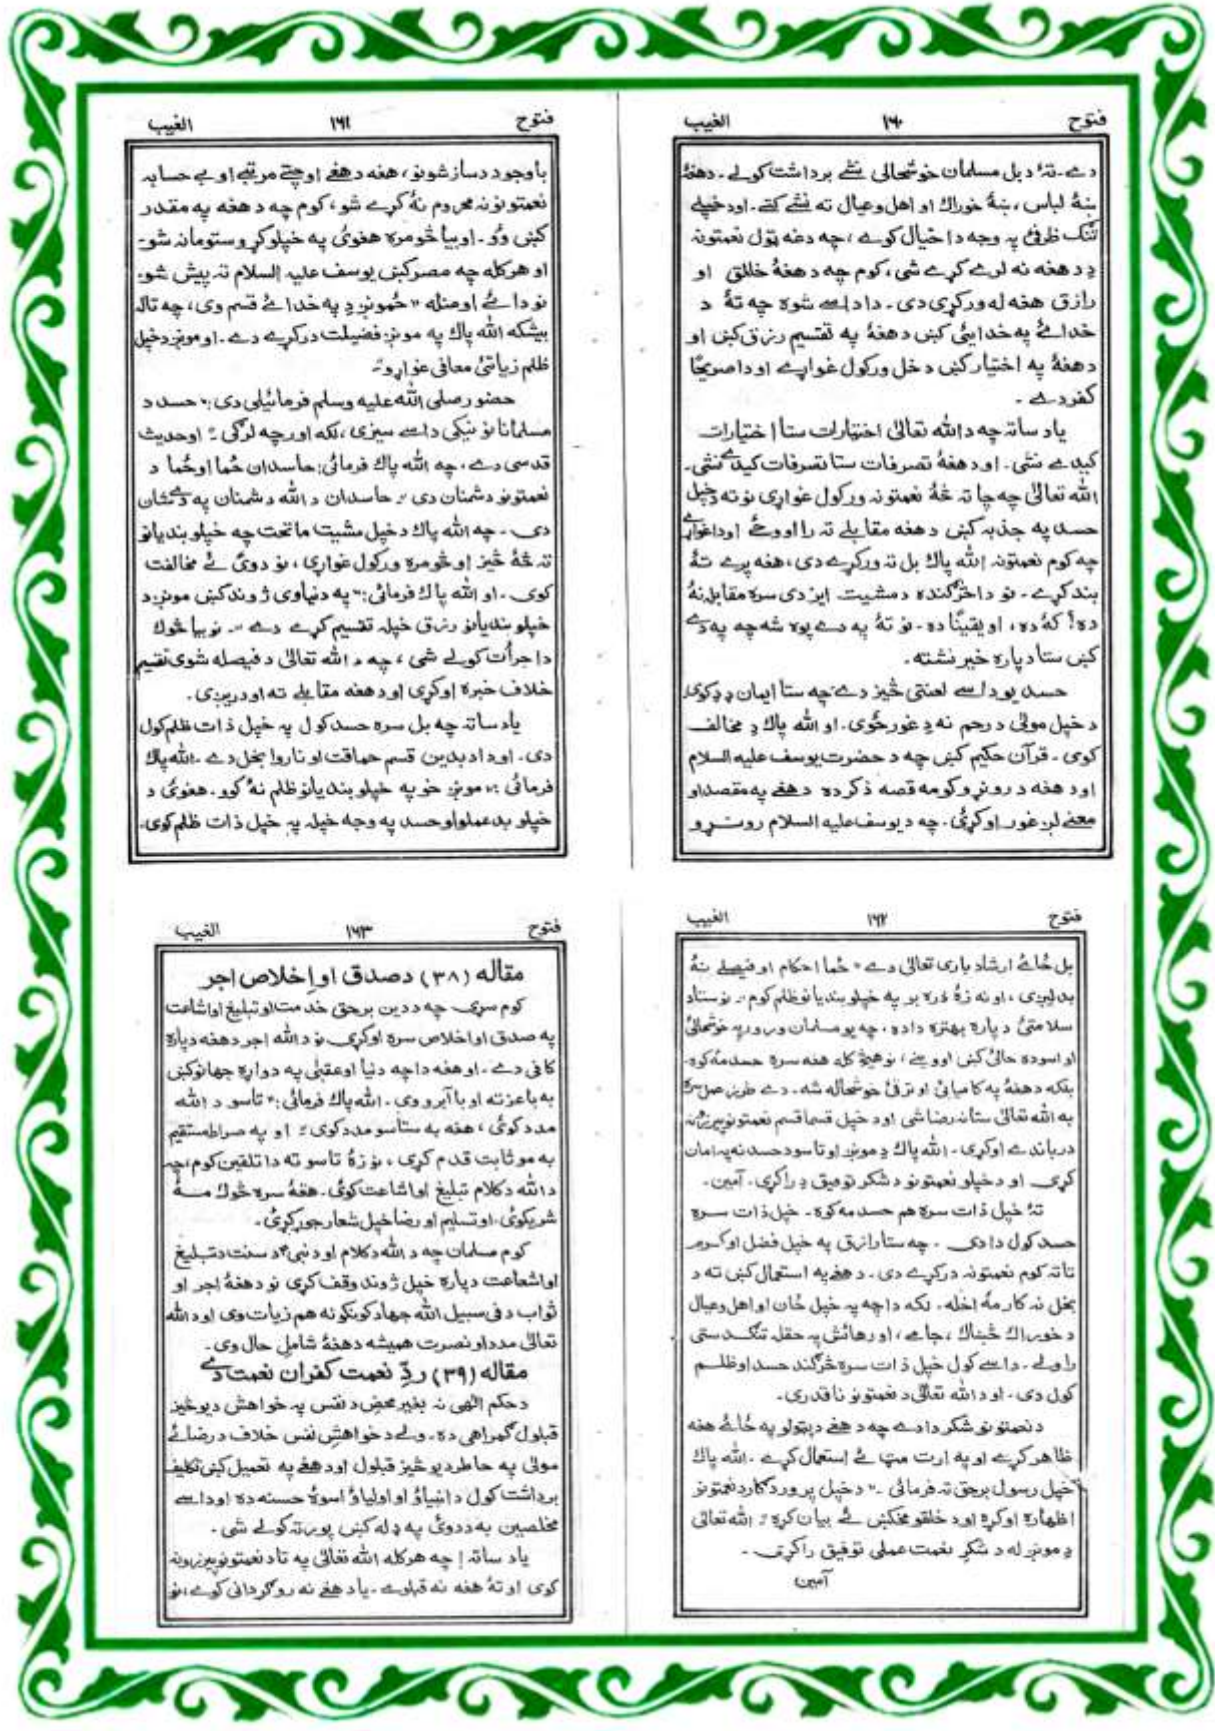 فتوح ۱۶۰ الغیب
دے۔ تۀ د بل مسلمان خوشحالی نشے برداشت کولے۔ دهغۀ
ښۀ لباس، ښۀ خوراک او اهل وعیال ته نشے کتے۔ اود خپلے
تنگ ظرفئ په وجه دا خیال کوے، چه دغه ټول نعمتونه
دِ دهغه نه لرے کړے شی، کوم چه دهغۀ خالق او
رازق هغه له ورکړی دی۔ دا داسے شوه چه تۀ د
خدائے په خدایئ کښ دهغۀ په تقسیم رزق کښ او
دهغۀ په اختیار کښ دخل ورکول غواړے او دا صریحًا
کفر دے۔
یاد ساته چه د الله تعالیٰ اختیارات ستا اختیارات
کیدے نشی۔ او دهغۀ تصرفات ستا تصرفات کیدے نشی۔
الله تعالیٰ چه چا ته څۀ نعمتونه ورکول غواړی نو ته دخپل
حسد په جذبه کښ دهغه مقابلے ته را اووځے اودا غواړے
چه کوم نعمتونه الله پاک بل ته ورکړے دی، هغه پرے تۀ
بند کړے۔ نو دا څرگنده د مشیت ایزدی سره مقابله نۀ
ده؟ کۀ ده، او یقینًا ده۔ نو تۀ په دے پوه شه چه په دے
کښ ستا دپاره خیر نشته۔
حسد یو داسے لعنتی څیز دے چه ستا ایمان دِ کوی
د خپل مولیٰ د رحم نه دِ غورځوی۔ او الله پاک دِ مخالف
کوی۔ قرآن حکیم کښ چه د حضرت یوسف علیه السلام
اود هغه د روڼرو کومه قصه ذکر ده دهغے په مقصد او
معنے لږ غور اوکړئ۔ چه د یوسف علیه السلام روڼرو
فتوح ۱۶۱ الغیب
باوجود د ساز شونو، هغه دهغے اوچتے مرتبے او بے حسابه
نعمتونو نه محروم نۀ کړے شو، کوم چه دهغه په مقدر
کښ وُو۔ او بیا څومره هغوئ په خپلو کړو ستومانه شو۔
او هر کله چه مصر کښ یوسف علیه السلام ته پیش شو۔
نو دا ئے اومنله " ځمونږ دِ په خدائے قسم وی، چه تاله
بیشکه الله پاک په مونږ فضیلت درکړے دے۔ او مونږ دخپل
ظلم زیاتئ معافی غواړو"۔
حضور صلی الله علیه وسلم فرمائیلی دی:" حسد د
مسلمانانو نیکی داسے سیزی، لکه اور چه لرگی"۔ او حدیث
قدسی دے، چه الله پاک فرمائی: حاسدان ځما او ځما د
نعمتونو دشمنان دی"۔ حاسدان د الله دشمنان په دے شان
دی۔ چه الله پاک دخپل مشیت ماتحت چه خپلو بندیانو
ته څۀ څیز او څومره ورکول غواړی، نو دوئ ئے مخالفت
کوی۔ او الله پاک فرمائی:" په دنیاوی ژوند کښ مونږ د
خپلو بندیانو رزق خپله تقسیم کړے دے"۔ نو بیا څوک
دا جرأت کولے شی، چه د الله تعالیٰ د فیصله شوی تقسیم
خلاف خبره اوکړی اود هغه مقابلے ته اودریږی۔
یاد ساته چه بل سره حسد کول په خپل ذات ظلم کول
دی۔ او دا د بدین قسم حماقت او ناروا بخل دے۔ الله پاک
فرمائی:" مونږ خو په خپلو بندیانو ظلم نۀ کوو۔ هغوئ د
خپلو بدعملو او حسد په وجه خپله په خپل ذات ظلم کوی۔
فتوح ۱۶۲ الغیب
بل ځائے ارشاد باری تعالیٰ دے " ځما احکام او فیصلے نۀ
بدلیږی، او نه زۀ ذره بر په خپلو بندیانو ظلم کوم"۔ نو ستا د
سلامتئ دپاره بهتره داده، چه یو مسلمان ورور په خوشحالئ
او اسوده حالئ کښ اووینے، نو هیڅ کله هغه سره حسد مۀ کوه۔
بلکه دهغۀ په کامیابئ او ترقئ خوشحاله شه۔ دے طرز عمل سره
به الله تعالیٰ ستا نه رضا شی او د خپل قسما قسم نعمتونو پیرزونه
درباندے اوکړی۔ الله پاک دِ مونږ او تاسو د حسد نه په امان
کړی او د خپلو نعمتونو د شکر توفیق دِ راکړی۔ آمین۔
تۀ خپل ذات سره هم حسد مه کوه۔ خپل ذات سره
حسد کول دا دی۔ چه ستا رازق په خپل فضل او کرم
تا ته کوم نعمتونه درکړے دی۔ دهغے په استعمال کښ ته د
بخل نه کار مۀ اخله۔ لکه دا چه په خپل ځان او اهل وعیال
د خوراک څښاک، جامے، او رهائش په حقله تنگدستی
راولے۔ داسے کول خپل ذات سره څرگند حسد او ظلم
کول دی۔ او د الله تعالیٰ د نعمتونو ناقدری۔
د نعمتونو شکر دا دے چه د هغے د پټولو په ځائے هغه
ظاهر کړے او په ارت مټ ئے استعمال کړے۔ الله پاک
خپل رسول برحق ته فرمائی۔" د خپل پروردگار د نعمتونو
اظهاره اوکړه او د خلقو مخکښ ئے بیان کړه"۔ الله تعالیٰ
دِ مونږ له د شکرِ نعمت عملی توفیق راکړی۔
آمین
فتوح ۱۶۳ الغیب
مقاله (۳۸) د صدق او اِخلاص اجر
کوم سړی چه د دین برحق خدمت او تبلیغ او اشاعت
په صدق او اخلاص سره اوکړی نو د الله اجر دهغه دپاره
کافی دے۔ او هغه دا چه دنیا او عقبیٰ په دواړه جهانو کښ
به باعزته او با آبرو وی۔ الله پاک فرمائی:" تاسو د الله
مدد کوئ، هغه به ستاسو مدد کوی"۔ او په صراط مستقیم
به مو ثابت قدم کړی، نو زۀ تاسو ته دا تلقین کوم، چه
د الله د کلام تبلیغ او اشاعت کوئ۔ هغۀ سره څوک مۀ
شریکوئ، او تسلیم او رضا خپل شعار جوړ کړئ۔
کوم مسلمان چه د الله د کلام او د نبیؐ د سنت د تبلیغ
او اشاعت دپاره خپل ژوند وقف کړی نو دهغۀ اجر او
ثواب د فی سبیل الله جهاد کوونکو نه هم زیات وی او د الله
تعالیٰ مدد او نصرت همیشه دهغۀ شاملِ حال وی۔
مقاله (۳۹) ردِّ نعمت کفران نعمت دے
د حکم الٰهی نه بغیر محض د نفس په خواهش د یو څیز
قبلول گمراهی ده۔ ولے د خواهشِ نفس خلاف د رضائے
مولیٰ په خاطر د یو څیز قبلول او دهغے په تعمیل کښ تکلیف
برداشت کول د انبیاؤ او اولیاؤ اسوۀ حسنه ده او داسے
مخلصین به د دوئ په ډله کښ پورته کولے شی۔
یاد ساته! چه هر کله الله تعالیٰ په تا د نعمتونو پیرزونه
کوی او تۀ هغه نه قبلوے۔ یا دهغے نه روگردانی کوے، نو